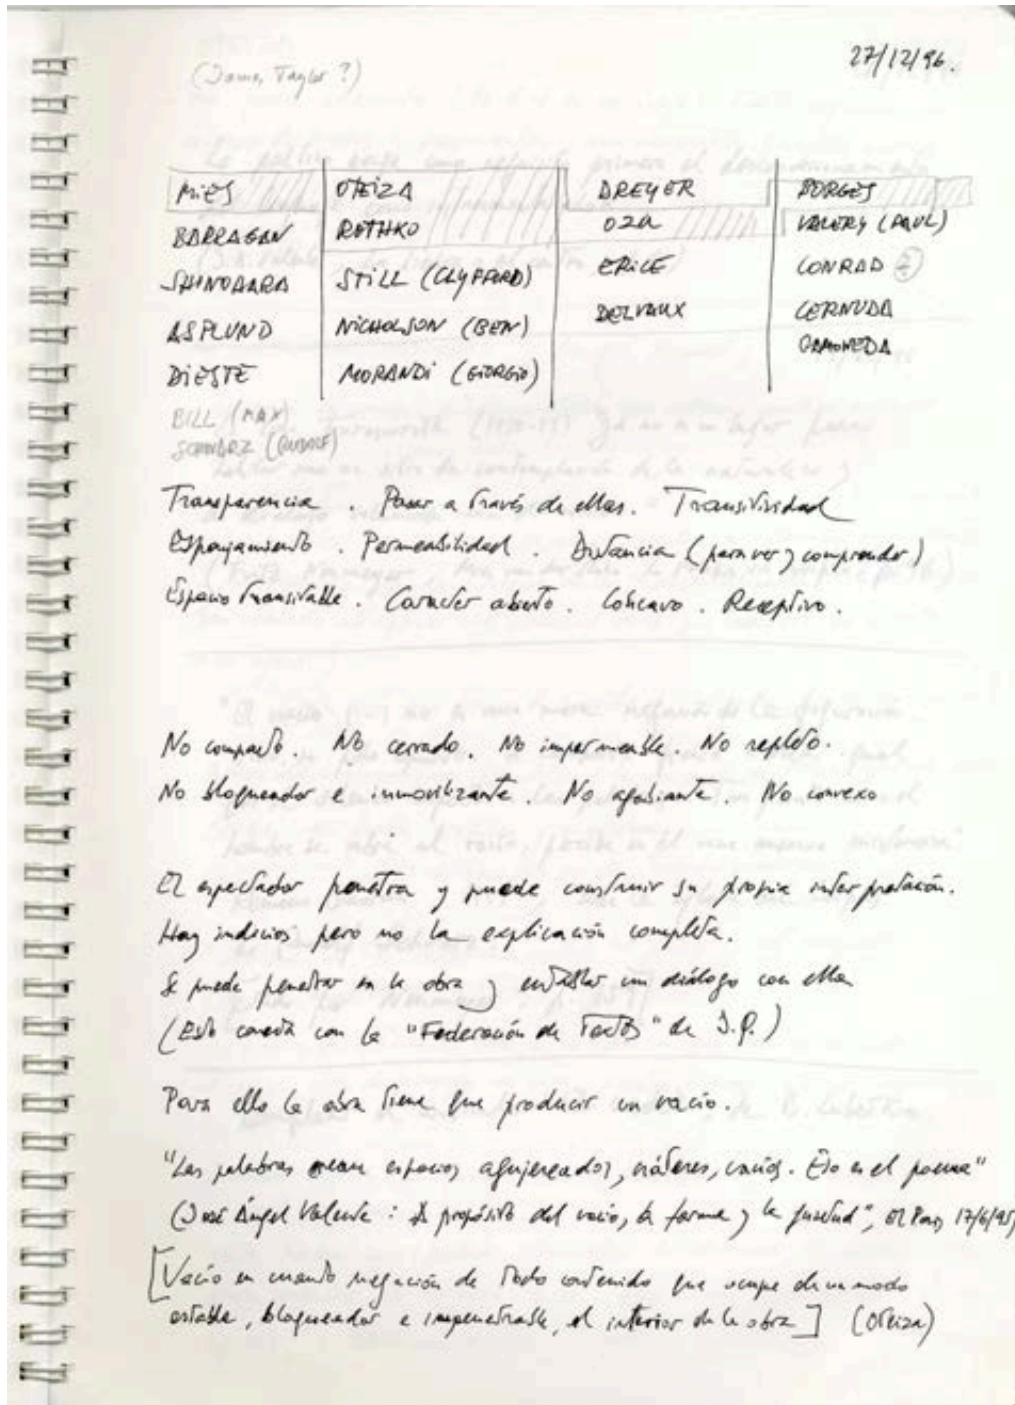 27/12/96.
(James Taylor ?)
MIES OTEIZA DREYER BORGES
BARRAGAN ROTHKO OZU VALERY (PAUL)
SHINOHARA STILL (CLYFFORD) ERICE CONRAD
ASPLUND NICHOLSON (BEN) DELVAUX CERNUDA
DIESTE MORANDI (GIORGIO) GAMONEDA
BILL (MAX)
SCHWARZ (RUDOLF)
Transparencia . Pasar a través de ellas. Transitividad
Esponjamiento . Permeabilidad . Distancia (para ver y comprender)
Espacio transitable . Carácter abierto . Cóncavo . Receptivo .
No compacto. No cerrado. No impermeable. No repleto.
No bloqueador e inmovilizante. No agobiante. No convexo
El espectador penetra y puede construir su propia interpretación.
Hay indicios pero no la explicación completa.
Se puede penetrar en la obra y entablar un diálogo con ella
(Esto conecta con la "Federación de Textos" de J.Q.)
Para ello la obra tiene que producir un vacío.
"Las palabras crean espacios agujereados, cráteres, vacíos. Eso es el poema"
(José Ángel Valente : A propósito del vacío, la forma y la quietud", El País, 17/6/95)
[Vacío en cuanto negación de todo contenido que ocupe de un modo
estable, bloqueador e impenetrable, el interior de la obra] (Oteiza)